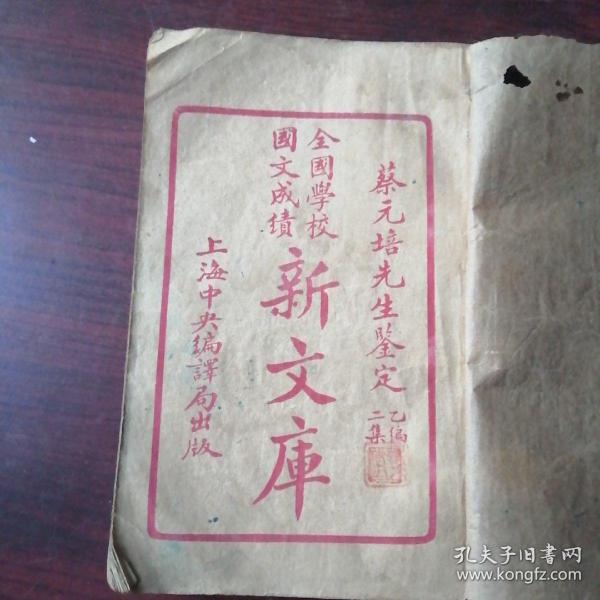 蔡元培先生鑒定
乙編
二集
全國學校
國文成績
新文庫
上海中央編譯局出版
孔夫子旧书网
www.kongfz.com